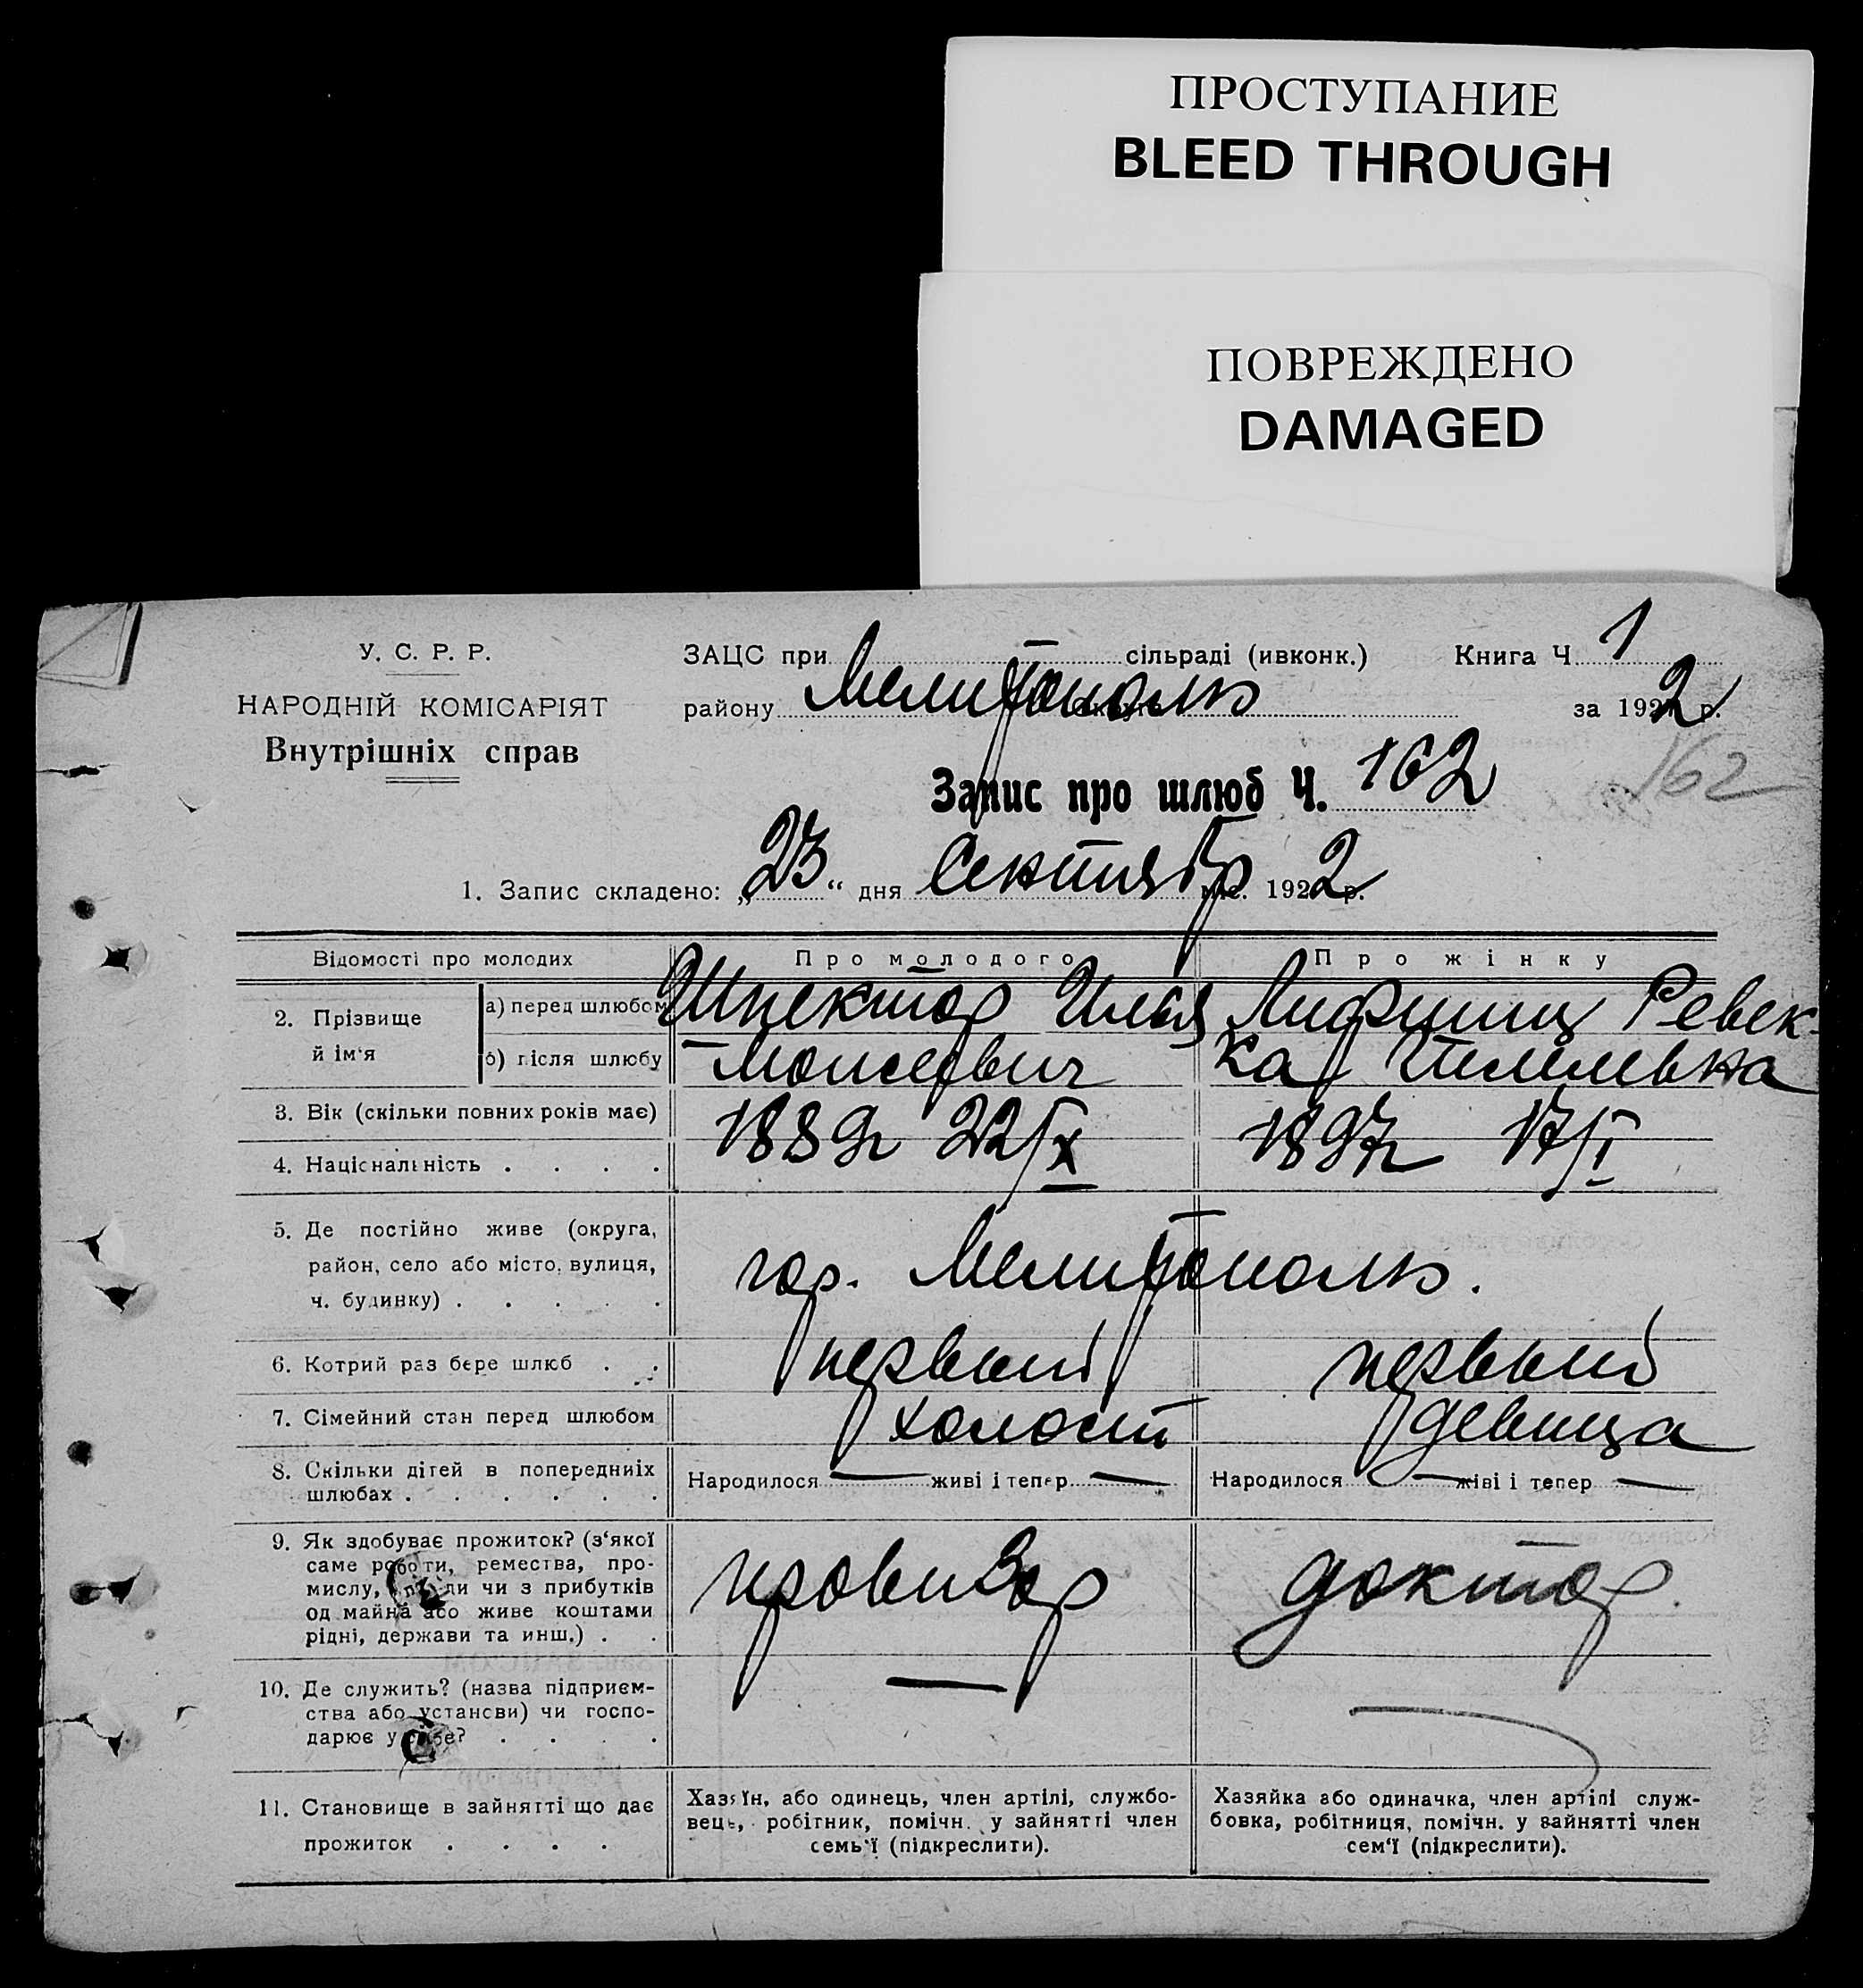 ПРОСТУПАНИЕ
BLEED THROUGH
ПОВРЕЖДЕНО
DAMAGED
У. С. Р. Р.
НАРОДНІЙ КОМІСАРІЯТ
Внутрішніх справ
ЗАЦС при сільраді (ивконк.) Книга Ч 1
району Мелитополь за 1922 р.
Запис про шлюб Ч. 162
162
1. Запис складено: „23“ дня Сентябр 1922 р.
Відомості про молодих Про молодого Про жінку
2. Прізвище й ім'я а) перед шлюбом Шпектор Илья Лифшиц Ревек-
б) після шлюбу Моисеевич ка
3. Вік (скільки повних років має) 1889г 22/IX 1897г 17/I
4. Національність . . . .
5. Де постійно живе (округа,
район, село або місто, вулиця,
ч. будинку) . . . . .
гор. Мелитополь.
6. Котрий раз бере шлюб . . первый первый
7. Сімейний стан перед шлюбом холост девица
8. Скільки дітей в попередніх Народилося — живі і тепер — Народилося — живі і тепер —
шлюбах . . . . . .
9. Як здобуває прожиток? (з'якої
саме роботи, ремества, про-
мислу, чи з прибутків
од майна або живе коштами
рідні, держави та инш.) . .
провизор доктор.
10. Де служить? (назва підприєм-
ства або установи) чи госпо-
дарює у себе? . . . .
—
11. Становище в зайнятті що дає
прожиток . . . .
Хазяїн, або одинець, член артілі, службо-
вець, робітник, помічн. у зайнятті член
семь'ї (підкреслити).
Хазяйка або одиначка, член артілі служ-
бовка, робітниця, помічн. у зайнятті член
сем'ї (підкреслити).